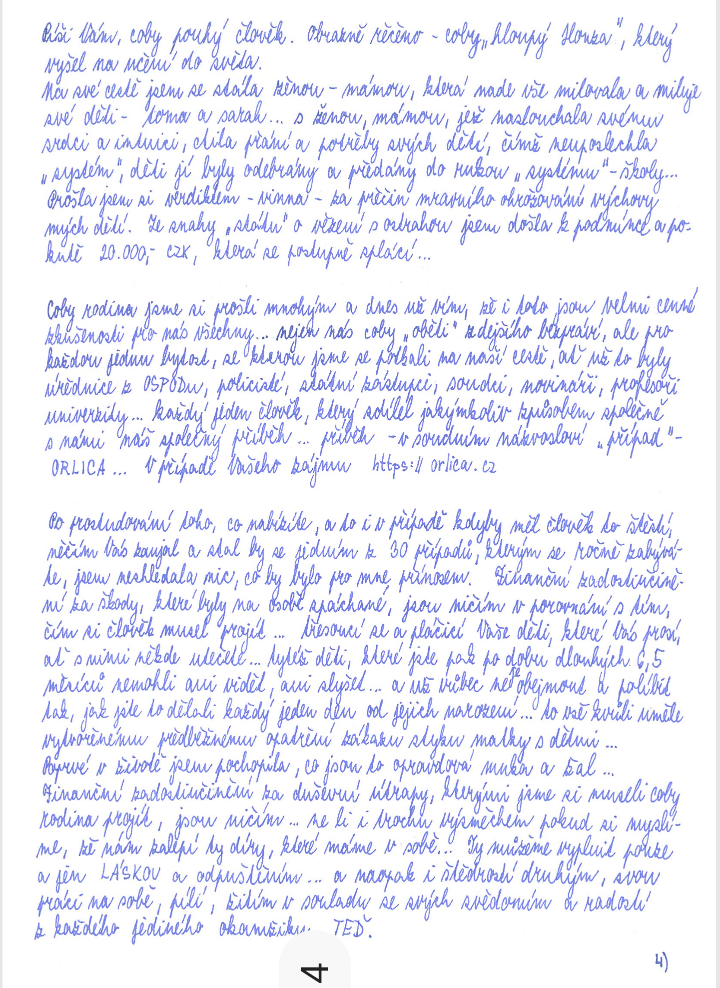 Píši Vám, coby pouhý člověk. Obrazně řečěno - coby „hloupý Honza", který
vyšel na učění do světa.
Na své cestě jsem se stala ženou - mámou, která nade vše milovala a miluje
své děti - toma a sarah... s ženou, mámou, jež naslouchala svému
srdci a intuici, ctila přání a potřeby svých dětí, čímž neuposlechla
„systém", děti jí byly odebrány a předány do rukou „systému" - školy...
Prošla jsem si verdiktem - vinna - za přečin mravního ohrožování výchovy
mých dětí. Ze snahy „státu" o vězení s ostrahou jsem došla k podmínce a po-
kutě 20.000,- CZK, která se postupně splácí...
Coby rodina jsme si prošli mnohým a dnes už vím, že i toto jsou velmi cenné
zkušenosti pro nás všechny... nejen nás coby „oběti" zdejšího bezpráví, ale pro
každou jednu bytost, se kterou jsme se potkali na naší cestě, ať už to byly
úřednice z OSPODu, policisté, státní zástupci, soudci, novináři, profesoři
univerzity... každý jeden člověk, který sdílel jakýmkoliv způsobem společně
s námi náš společný příběh... příběh - v soudním názvosloví „případ" -
ORLICA... V případě Vašeho zájmu https:// orlica.cz
Po prostudování toho, co nabízíte, a to i v případě kdyby měl člověk to štěstí,
něčím Vás zaujal a stal by se jedním z 30 případů, kterým se ročně zabývá-
te, jsem neshledala nic, co by bylo pro mne přínosem. Finanční zadostiučině-
ní za škody, které byly na osobě spáchané, jsou ničím v porovnání s tím,
čím si člověk musel projít... třesoucí se a plačící Vaše děti, které Vás prosí,
ať s nimi někde utečete... tytéž děti, které jste pak po dobu dlouhých 6,5
měsíců nemohli ani vidět, ani slyšet... a už vůbec ne je obejmout a políbit
tak, jak jste to dělali každý jeden den od jejich narození... to vše kvůli uměle
vytvořenému předběžnému opatření zákazu styku matky s dětmi...
Poprvé v životě jsem pochopila, co jsou to opravdová muka a žal...
Finanční zadostiučinění za duševní útrapy, kterými jsme si museli coby
rodina projít, jsou ničím... ne li i trochu výsměchem pokud si myslí-
me, že nám zalepí ty díry, které máme v sobě... Ty můžeme vyplnit pouze
a jen LÁSKOU a odpuštěním... a naopak i štědrostí druhým, svou
prací na sobě, pílí, žitím v souladu se svých svědomím a radostí
z každého jediného okamžiku. TEĎ.
4)
4